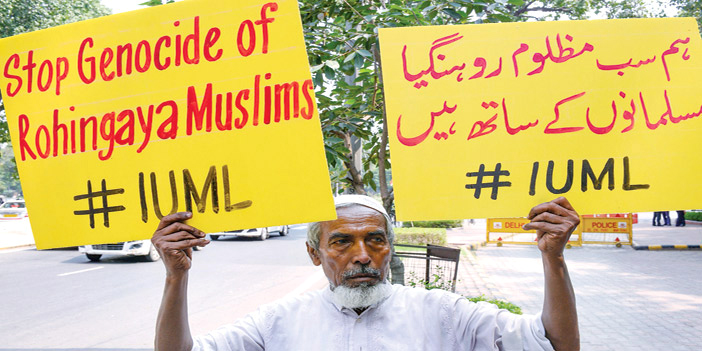 Stop Genocide of
Rohingaya Muslims
#IUML
ہم سب مظلوم روہنگیا
مسلمانوں کے ساتھ ہیں
#IUML
DELHI
POLICE